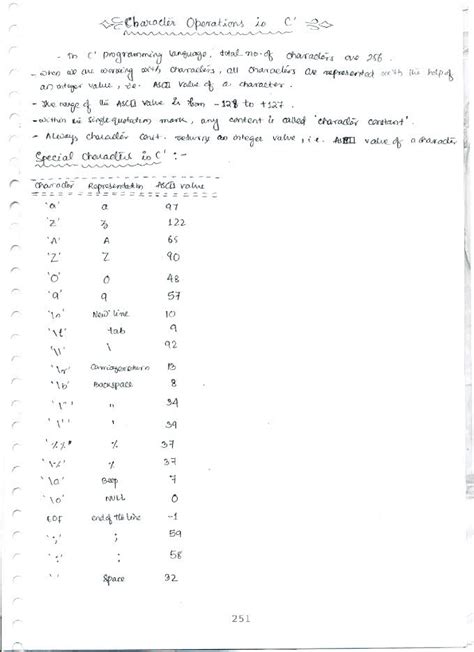 Character Operations in C'
- In C' programming language, total no. of characters are 256.
- when we are working with characters, all characters are represented with the help of
an integer value, i.e. ASCII value of a character.
- The range of the ASCII value is from -128 to +127.
- within the single quotation mark, any content is called 'character constant'.
- Always character const. returns an integer value, i.e. ASCII value of a character
Special Characters in C' :-
character Representation ASCII value
'a' a 97
'z' z 122
'A' A 65
'Z' Z 90
'0' 0 48
'9' 9 57
'\n' New line 10
'\t' tab 9
'\\' \ 92
'\r' carriage return 13
'\b' Backspace 8
'\"' " 34
'\'' ' 39
'%%' % 37
'\%' % 37
'\a' Beep 7
'\0' NULL 0
EOF end of the line -1
';' ; 59
':' : 58
' ' Space 32
251